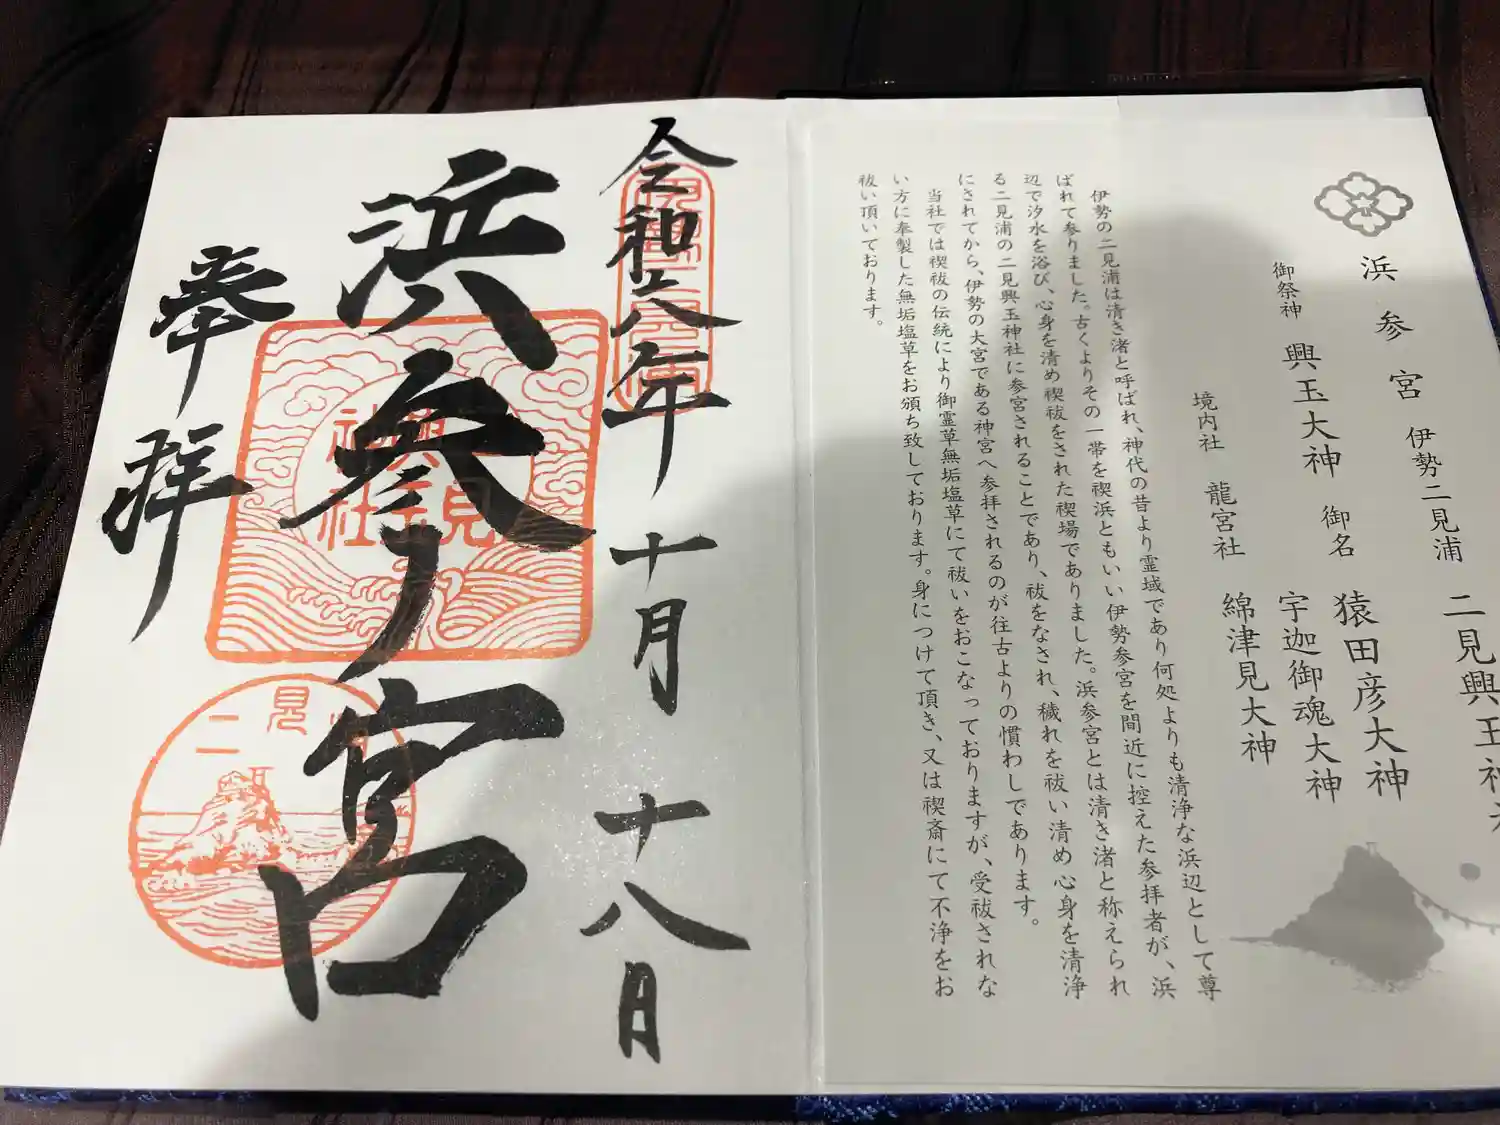 浜参宮
伊勢二見浦
二見興玉神
御祭神
興玉大神
御名
猿田彦大神
宇迦御魂大神
境内社
龍宮社
綿津見大神
伊勢の二見浦は清き渚と呼ばれ、神代の昔より霊域であり何処よりも清浄な浜辺として尊
ばれて参りました。古くよりその一帯を禊浜ともいい伊勢参宮を間近に控えた参拝者が、浜
辺で汐水を浴び、心身を清め禊祓をされた禊場でありました。浜参宮とは清き渚と称えられ
る二見浦の二見興玉神社に参宮されることであり、祓をなされ、穢れを祓い清め心身を清浄
にされてから、伊勢の大宮である神宮へ参拝されるのが往古よりの慣わしであります。
当社では禊祓の伝統により御霊草無垢塩草にて祓いをおこなっておりますが、受祓されな
い方に奉製した無垢塩草をお頒ち致しております。身につけて頂き、又は禊斎にて不浄をお
祓い頂いております。
令和六年十月十八日
浜参宮
奉拝
二見